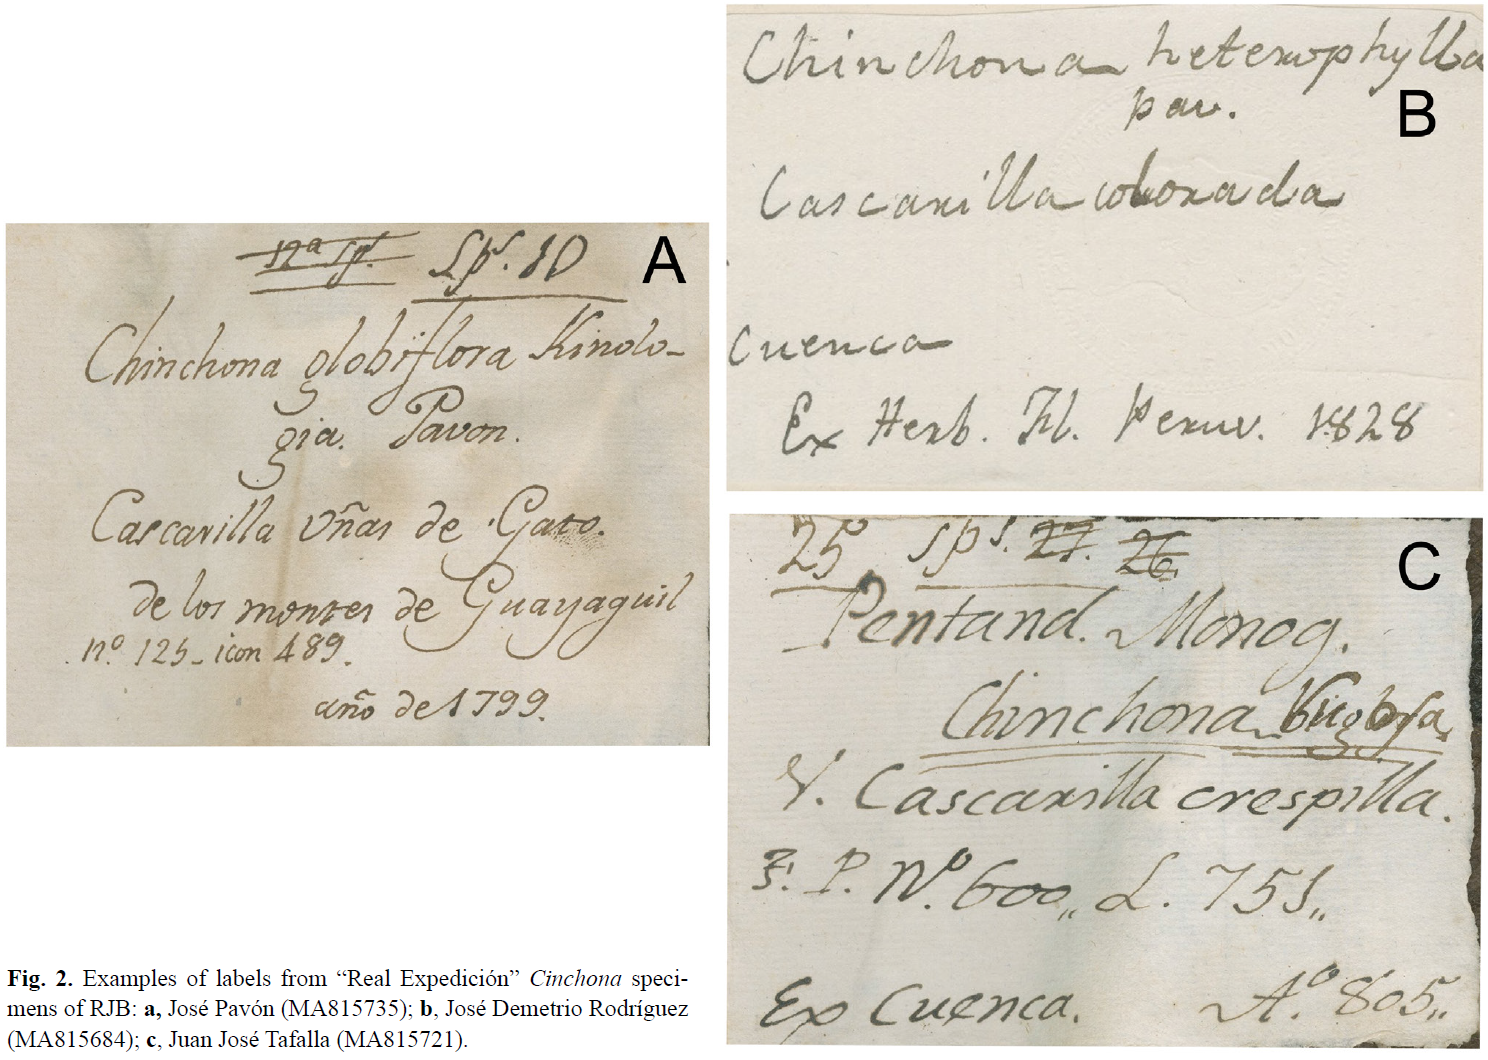 12ª Sp.ˢ Sp.ˢ 10
A
Chinchona globiflora Kinolo-
gia. Pavon.
Cascarilla Uñas de Gato.
de los montes de Guayaquil
nº 125- icon 489.
año de 1799.
Chinchona heterophylla
pav.
B
Cascarilla colorada
Cuenca
Ex Herb. Fl. Peruv. 1828
25ª spˢ. 27. 26.
C
Pentand. Monog.
Chinchona
V. Cascarilla crespilla.
F. P. Nº. 600,, L. 751,,
Ex Cuenca. Aº. 805,,
Fig. 2. Examples of labels from “Real Expedición” Cinchona speci-
mens of RJB: a, José Pavón (MA815735); b, José Demetrio Rodríguez
(MA815684); c, Juan José Tafalla (MA815721).